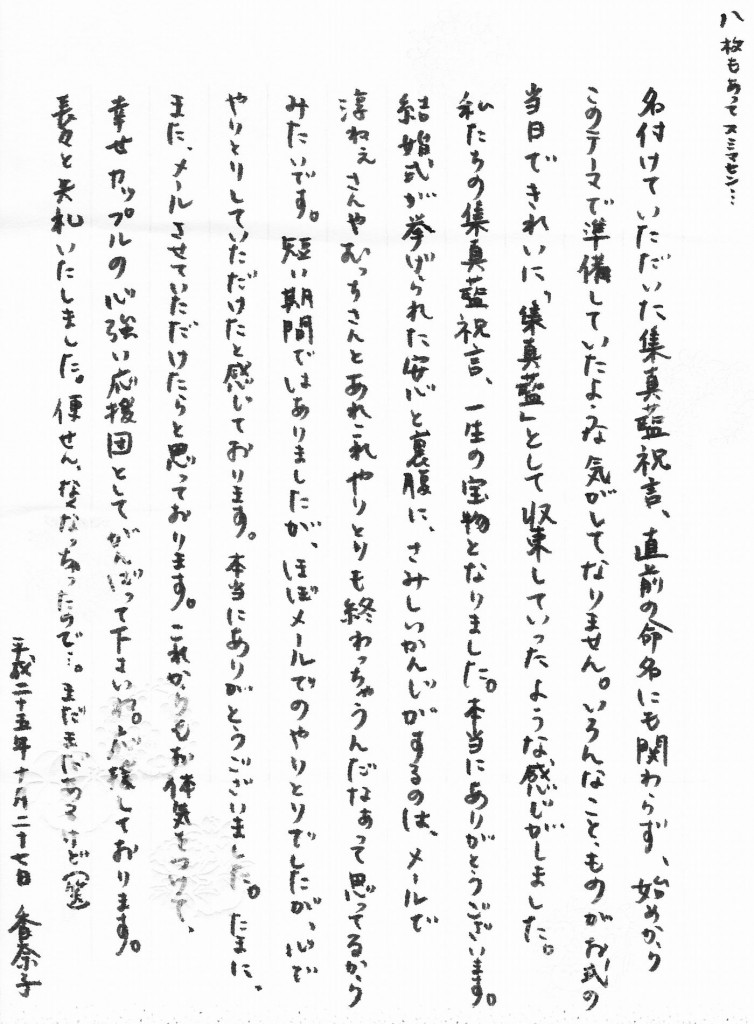 八枚もあってスミマセン…
名付けていただいた集真藍祝言、直前の命名にも関わらず、始めから
このテーマで準備していたような気がしてなりません。いろんなこと、ものがお式の
当日できれいに「集真藍」として収束していったような感じがしました。
私たちの集真藍祝言、一生の宝物となりました。本当にありがとうございます。
結婚式が挙げられた安心と裏腹に、さみしいかんじがするのは、メールで
淳ねぇさんやむっちさんとあれこれやりとりも終わっちゃうんだなぁって思ってるから
みたいです。短い期間ではありましたが、ほぼメールでのやりとりでしたが、心で
やりとりしていただけたと感じております。本当にありがとうございました。たまに、
また、メールさせていただけたらと思っております。これからもお体気をつけて、
幸せカップルの心強い応援団としてがんばって下さいね。応援しております。
長々と失礼いたしました。便せん、なくなっちゃったので…。まだまだあるけど(笑)
平成二十五年十月二十七日 香奈子